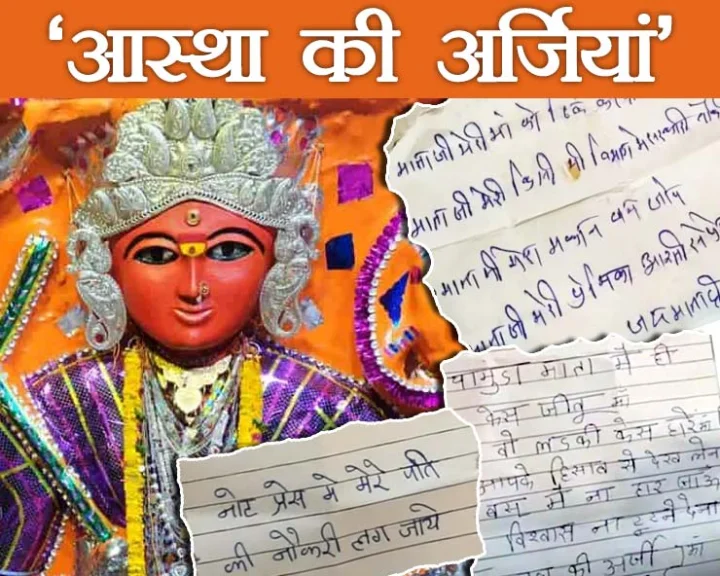 ‘आस्था की अर्जियां’
माताजी मेरी माँ को ठिक
माता जी मेरी किसी भी विभाग मे सरकारी
माता जी मेरा मकान बन जाये
मेरी प्रेमिका आरती
जय माता दी
चामुंडा माता मे ही
केस जीतू माँ
वो लडकी केस हारे माँ
आपके हिसाब से देख लेना
बस में ना हार जाऊ
विश्वास ना टूटने देना
की अर्जी माँ
नोट प्रेस मे मेरे पति
की नौकरी लग जाये